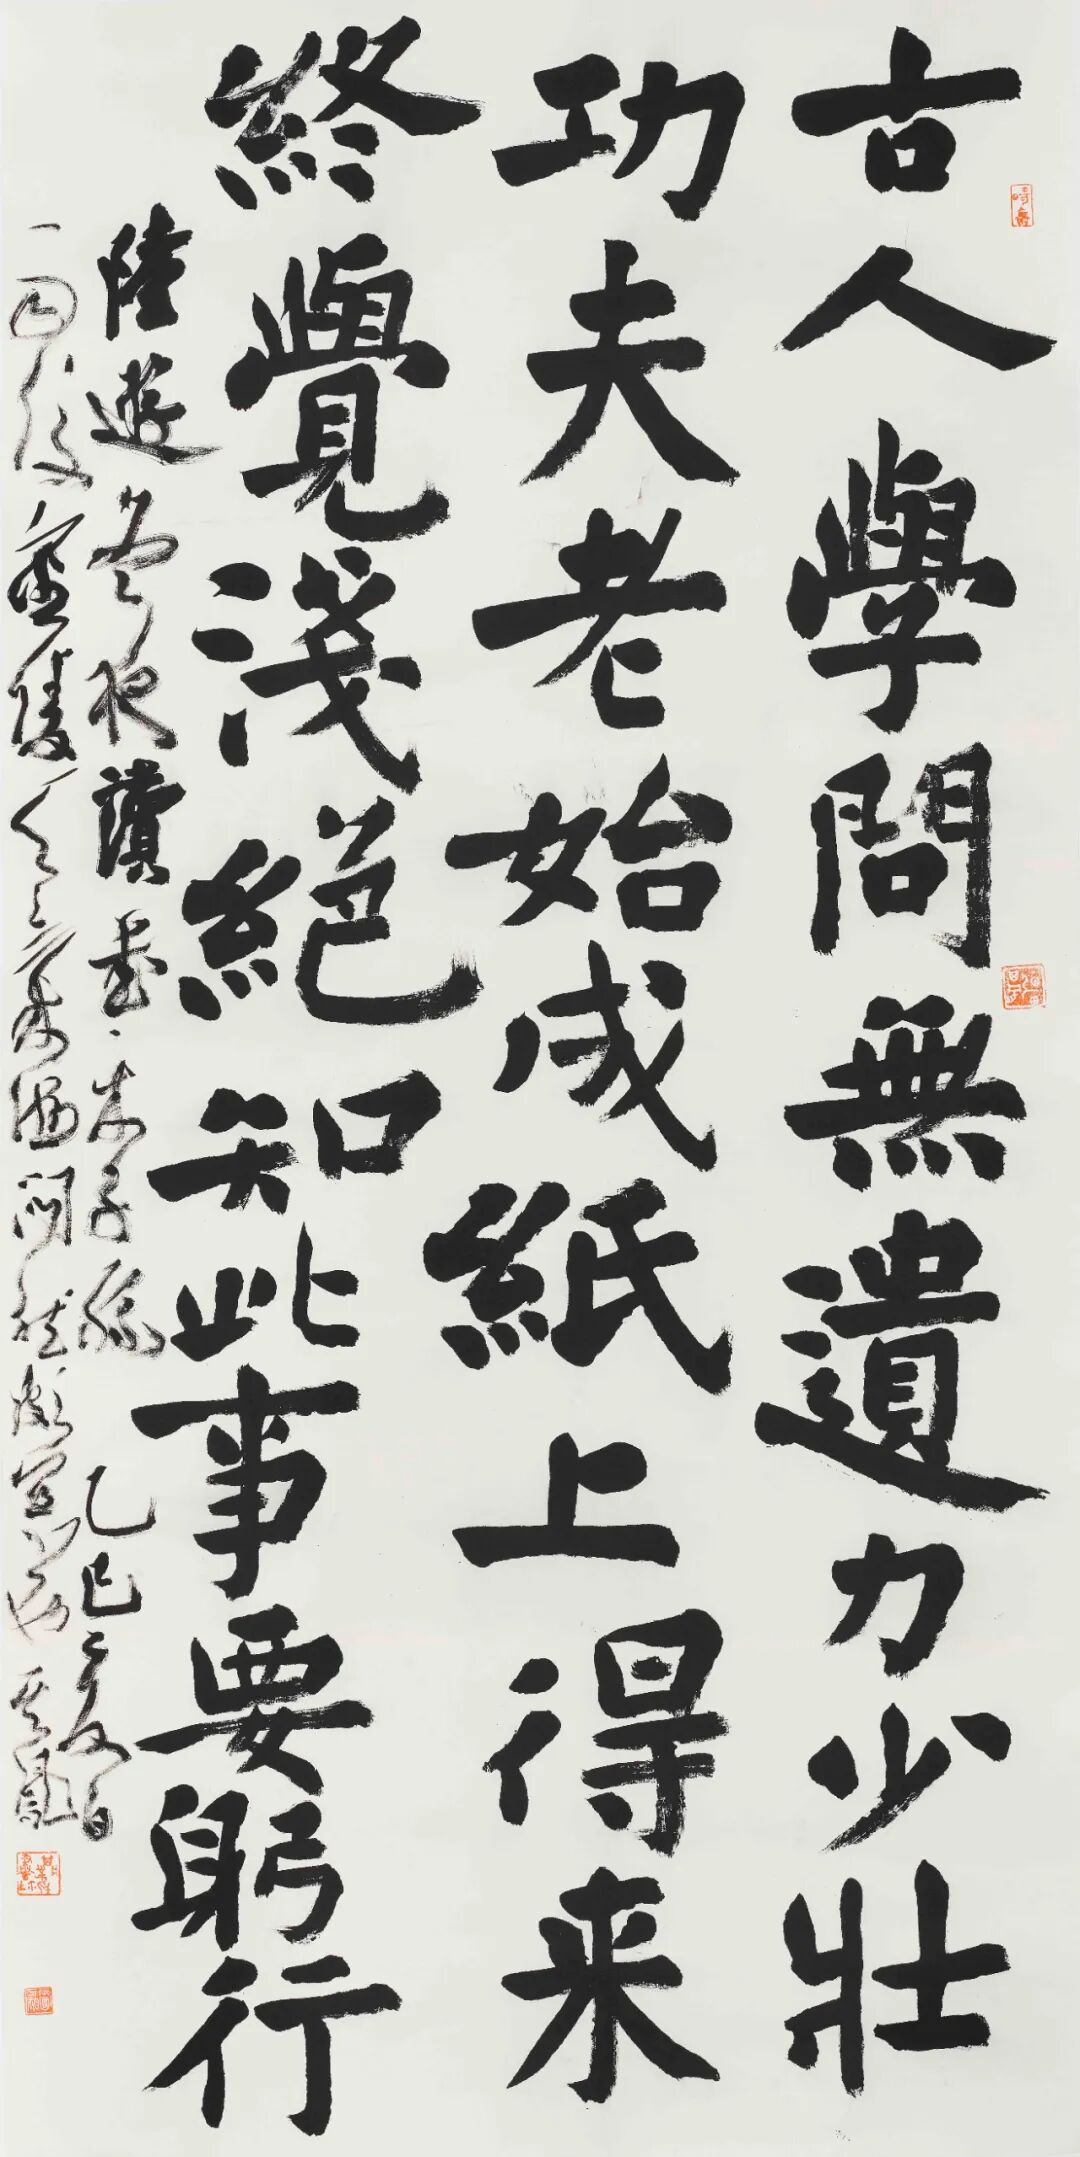 古人學問無遺力少壯
功夫老始成紙上得来
終覺淺絕知此事要躬行
陸遊冬夜讀書示子聿 乙巳